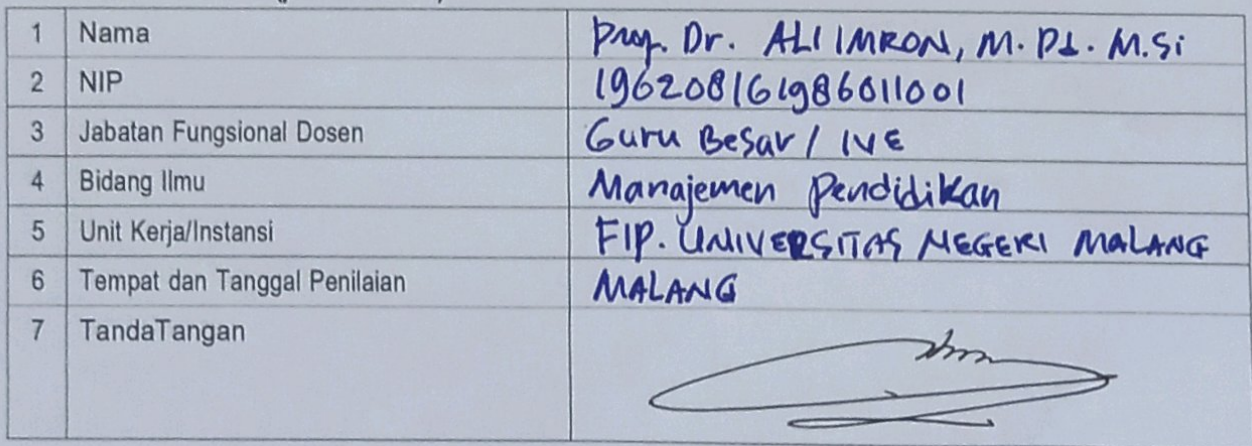 1 Nama Prof. Dr. ALI IMRON, M. Pd. M.Si
2 NIP 196208161986011001
3 Jabatan Fungsional Dosen Guru Besar / IVE
4 Bidang Ilmu Manajemen Pendidikan
5 Unit Kerja/Instansi FIP. UNIVERSITAS NEGERI MALANG
6 Tempat dan Tanggal Penilaian MALANG
7 TandaTangan